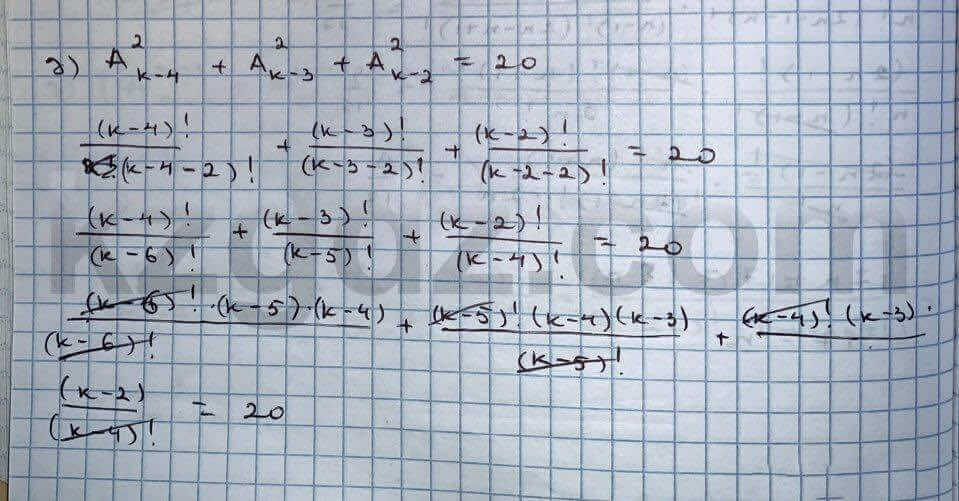 д) A²ₖ₋₄ + A²ₖ₋₃ + A²ₖ₋₂ = 20
(k-4)!/(k-4-2)! + (k-3)!/(k-3-2)! + (k-2)!/(k-2-2)! = 20
(k-4)!/(k-6)! + (k-3)!/(k-5)! + (k-2)!/(k-4)! = 20
(k-6)!·(k-5)·(k-4)/(k-6)! + (k-5)!(k-4)(k-3)/(k-5)! + (k-4)!(k-3)·
(k-2)/(k-4)! = 20